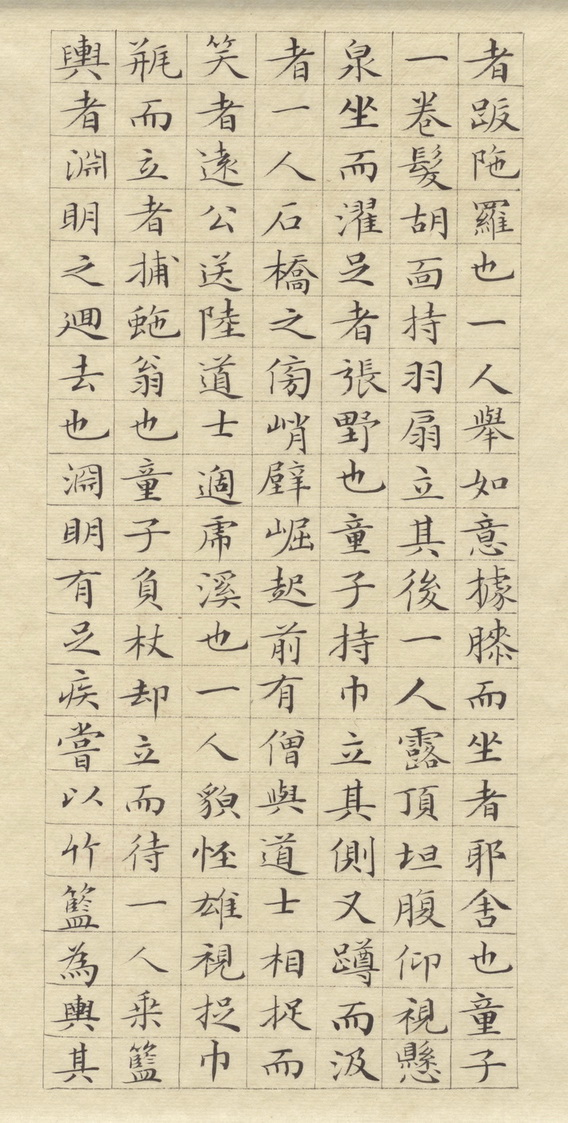 者跋陁羅也一人舉如意據膝而坐者耶舍也童子
一卷髮胡面持羽扇立其後一人露頂坦腹仰視懸
泉坐而濯足者張野也童子持巾立其側又蹲而汲
者一人石橋之傍峭壁崛起前有僧與道士相捉而
笑者遠公送陸道士過虎溪也一人貌怪雄視捉巾
瓶而立者捕虵翁也童子負杖却立而待一人乗籃
輿者淵明之迴去也淵明有足疾嘗以竹籃為輿其